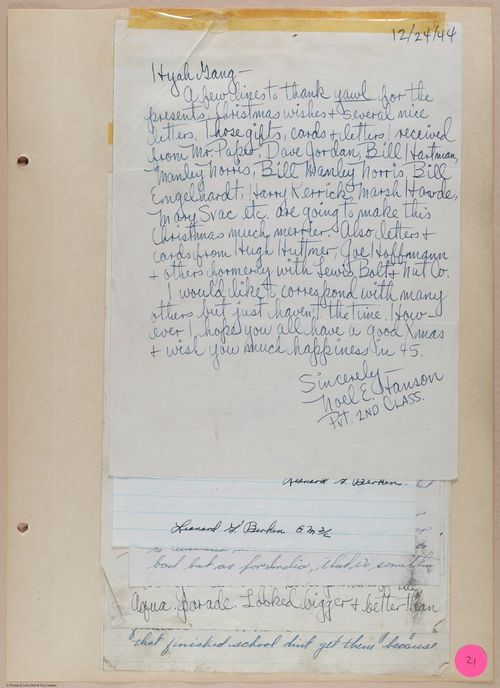 12/24/44
Hyah Gang—
A few lines to thank yawl for the
presents, Christmas wishes & several nice
letters. Those gifts, cards & letters I received
from Mr. Paper, Dave Jordan, Bill Hartman,
Manley Norris, Bill Manley Norris, Bill
Engelhardt, Harry Kerrick, Marsh Hawde,
Mary Svac etc. are going to make this
Christmas much merrier. Also letters &
cards from Hugh Huttner, Joe Hoffmann
& others formerly with Lewis Bolt & Nut Co.
I would like to correspond with many
others but just haven't the time. How-
ever I hope you all have a good Xmas
& wish you much happiness in 45.
Sincerely—
Noel E. Hanson
Pvt. 2ND CLASS.
Leonard G. Berken.
Leonard G. Berken
bad but as for India, that is something
Aqua parade. Looked bigger & better than
that finished school dint get them because
21